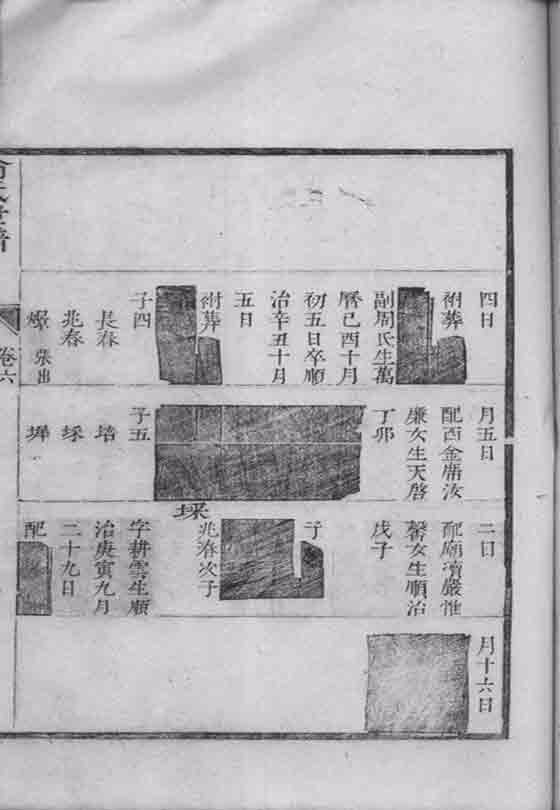 四日
祔葬
副周氏生萬
曆己酉十月
初五日卒順
治辛丑十月
五日
祔葬
子四
長春
兆春
張出
月五日
配西金廟汝
廉女生天啓
丁卯
子五
培
埰
墀
二日
配廟瀆嚴惟
馨女生順治
戊子
子
埰
兆春次子
字耕雲生順
治庚寅九月
二十九日
配
月十六日
卷六